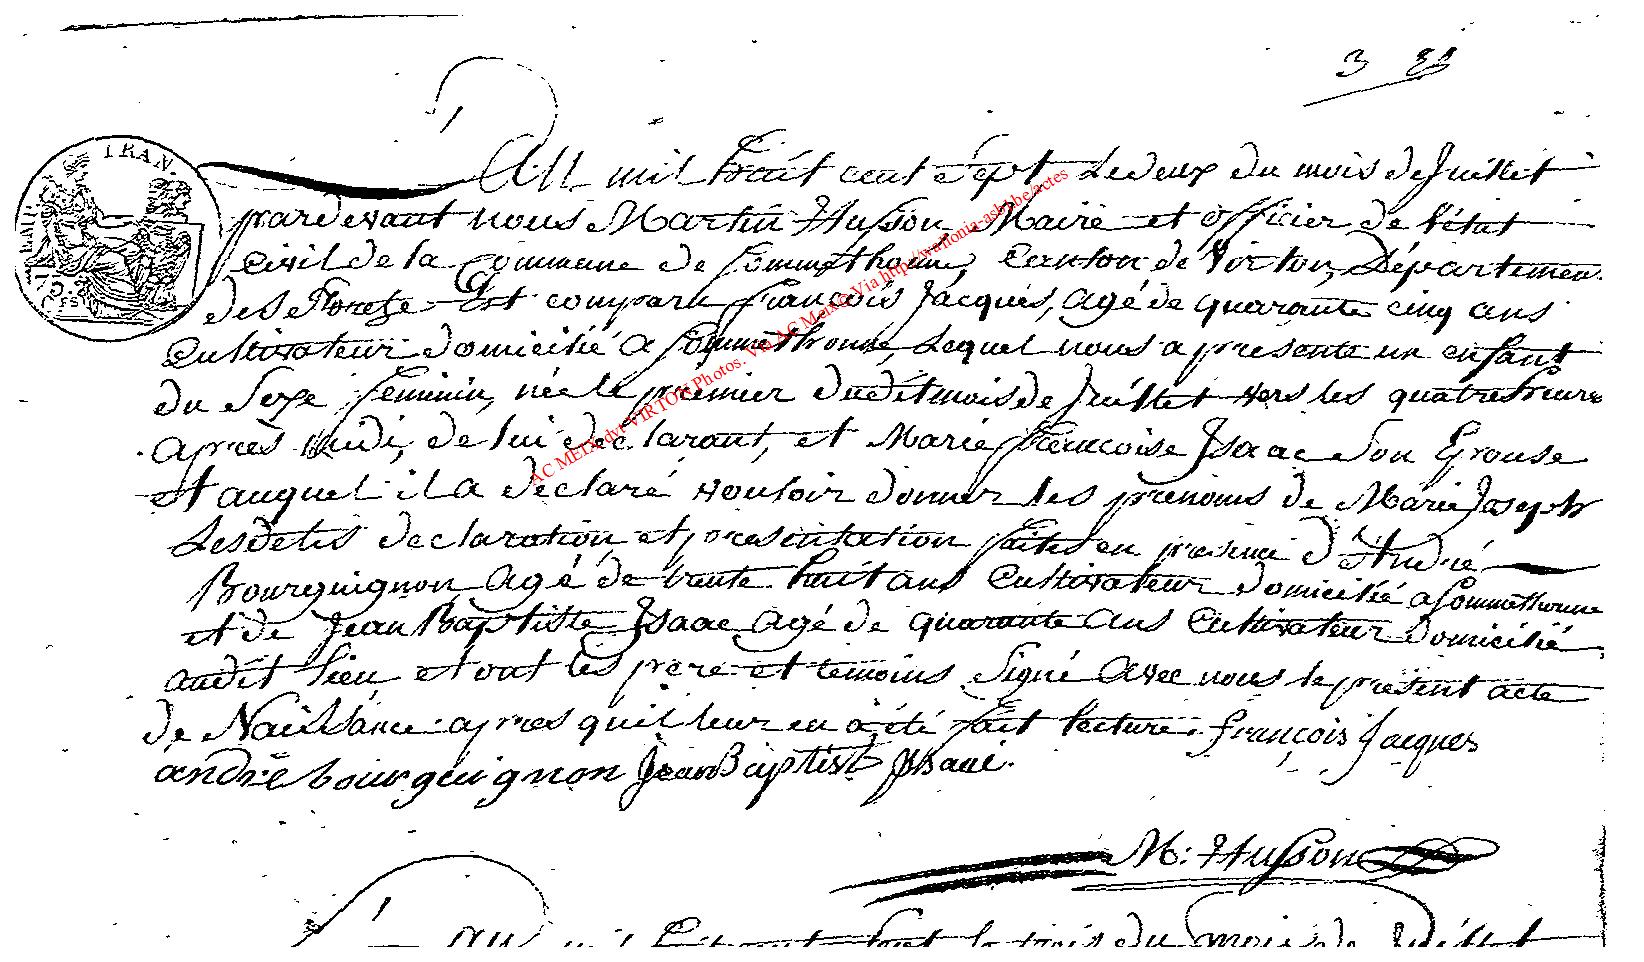 3 
TRAN.
An mil huit cent sept Le deux du mois de Juillet
pardevant nous Martin Husson Maire et officier de l'état
civil de la Commune de Sommethonne, Canton de Virton, Départemen
des Forets Est comparu françois Jacques, agé de quarante cinq ans
Cultivateur domicilié a Sommethonne, Lequel nous a presente un enfant
du Sexe feminin, née le premier dudit mois de Juillet vers les quatres heures
apres midi, de lui declarant, et Marie françoise Isaac Son Epouse
et auquel il a declaré vouloir donner les prenoms de Marie Joseph
Lesdetes declaration et presentation faites en presence d'André
Bourguignon agé de trente huit ans Cultivateur domicilié a Sommethonne
et de Jean Baptiste Isaac agé de quarante ans Cultivateur domicilié
audit lieu, et ont les pere et temoins Signé avec nous le present acte
de Naissance apres quil leur en a été fait lecture. françois Jacques
andré bourguignon Jean Baptist Isaac.
M: Husson
An mil huit cent sept le trois du mois de Juillet
AC MEIX-dvt-VIRTON Photos. Via AC Meix. Via http://wallonia-asbl.be/actes